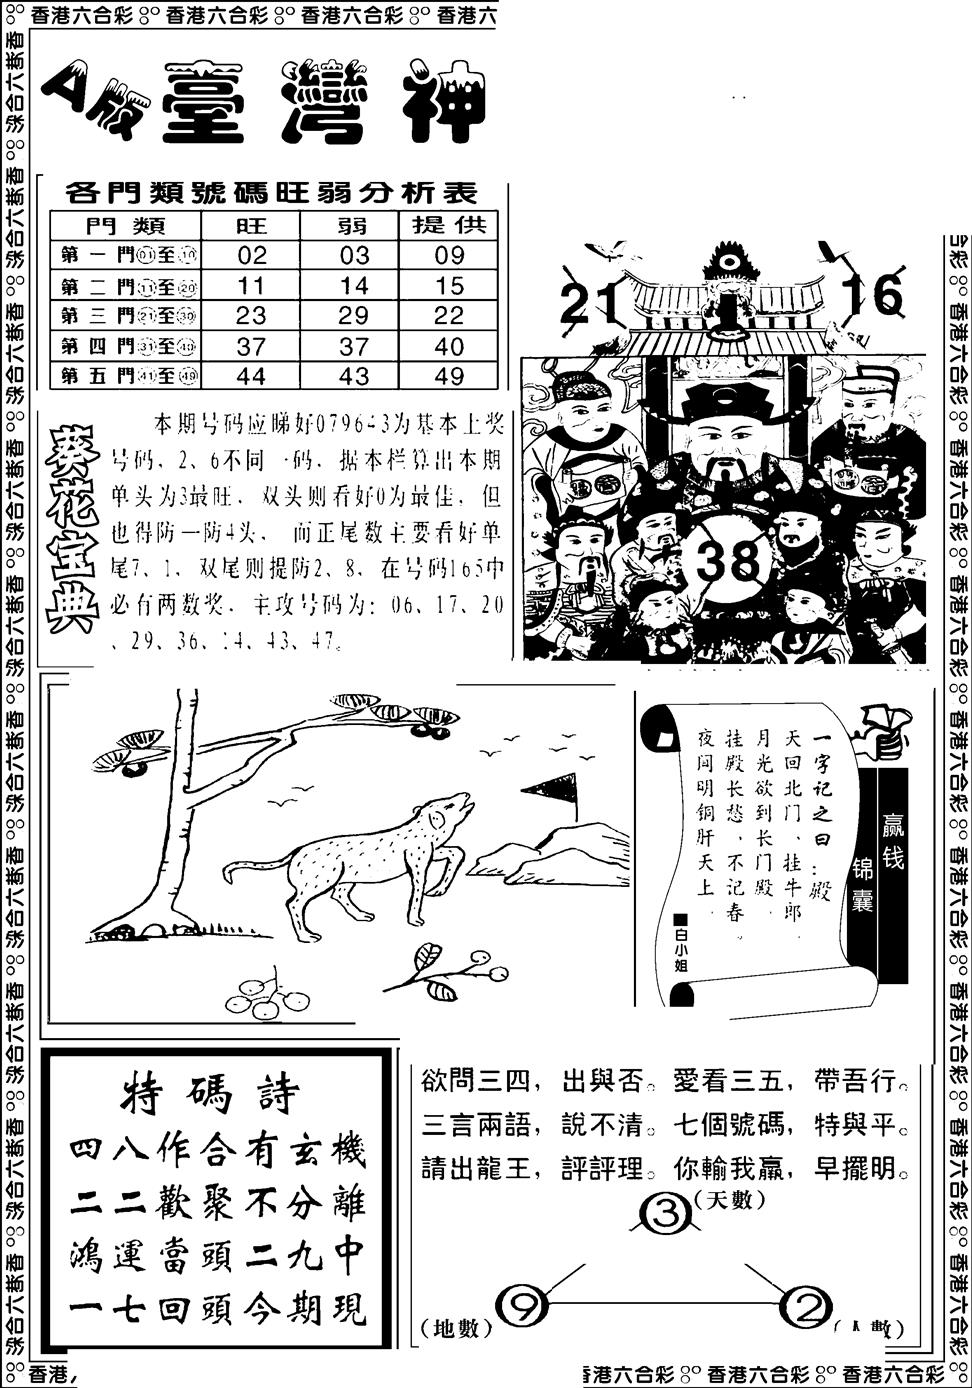 香港六合彩 香港六合彩 香港六合彩 香港六
A版 臺灣神
各門類號碼旺弱分析表
門類 旺 弱 提供
第一門01至10 02 03 09
第二門11至20 11 14 15
第三門21至30 23 29 22
第四門31至40 37 37 40
第五門41至49 44 43 49
21 16
38
葵花宝典
本期号码应睇好079643为基本上奖
号码，2、6不同一码，据本栏算出本期
单头为3最旺，双头则看好0为最佳，但
也得防一防4头，而正尾数主要看好单
尾7、1，双尾则提防2、8，在号码165中
必有两数奖，主攻号码为：06、17、20
、29、36、14、43、47。
赢钱
锦囊
一字记之曰：殿
天回北门、挂牛郎
月光欲到长门殿
挂殿长愁、不记春。
夜间明铜肝天上.
■白小姐
特碼詩
四八作合有玄機
二二歡聚不分離
鴻運當頭二九中
一七回頭今期現
欲問三四，出與否。愛看三五，帶吾行。
三言兩語，說不清。七個號碼，特與平。
請出龍王，評評理。你輸我贏，早擺明。
3
(天數)
9 2
(地數)
香港
香港六合彩 香港六合彩 香港六合彩